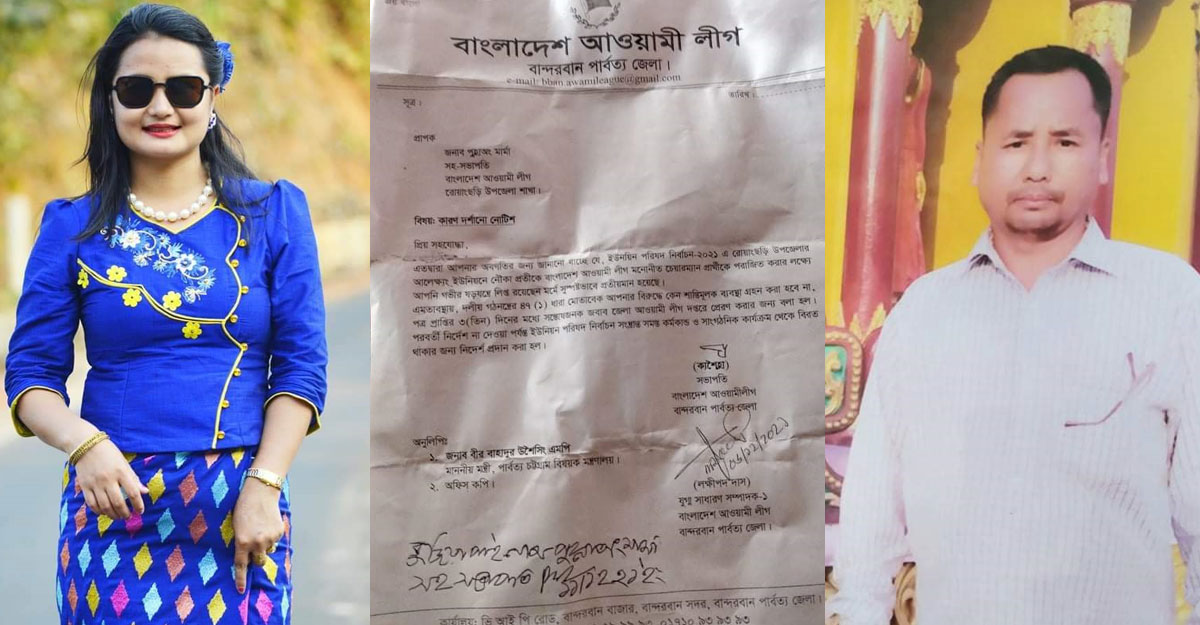 বাংলাদেশ আওয়ামী লীগ
বান্দরবান পার্বত্য জেলা।
e-mail: bban.awamileague@gmail.com
সূত্র :
তারিখ :
প্রাপক
জনাব পুহ্লাঅং মার্মা
সহ-সভাপতি
বাংলাদেশ আওয়ামী লীগ
রোয়াংছড়ি উপজেলা শাখা।
বিষয়: কারণ দর্শানো নোটিশ
প্রিয় সহযোদ্ধা,
এতদ্বারা আপনার অবগতির জন্য জানানো যাচ্ছে যে, ইউনিয়ন পরিষদ নির্বাচন-২০২১ এ রোয়াংছড়ি উপজেলার
আলেক্ষ্যং ইউনিয়নে নৌকা প্রতীকে বাংলাদেশ আওয়ামী লীগ মনোনীত চেয়ারম্যান প্রার্থীকে পরাজিত করার লক্ষ্যে
আপনি গভীর ষড়যন্ত্রে লিপ্ত রয়েছেন মর্মে সুস্পষ্টভাবে প্রতীয়মান হয়েছে।
এমতাবস্থায়, দলীয় গঠনতন্ত্রের ৪৭ (১) ধারা মোতাবেক আপনার বিরুদ্ধে কেন শাস্তিমূলক ব্যবস্থা গ্রহন করা হবে না,
পত্র প্রাপ্তির ৩(তিন) দিনের মধ্যে সন্তোষজনক জবাব জেলা আওয়ামী লীগ দপ্তরে প্রেরণ করার জন্য বলা হল।
পরবর্তী নির্দেশ না দেওয়া পর্যন্ত ইউনিয়ন পরিষদ নির্বাচন সংশ্লিষ্ট সমস্ত কর্মকান্ড ও সাংগঠনিক কার্যক্রম থেকে বিরত
থাকার জন্য নির্দেশ প্রদান করা হল।
সভাপতি
বাংলাদেশ আওয়ামীলীগ
বান্দরবান পার্বত্য জেলা
অনুলিপিঃ
১. জনাব বীর বাহাদুর উশৈসিং এমপি
মাননীয় মন্ত্রী, পার্বত্য চট্টগ্রাম বিষয়ক মন্ত্রণালয়।
২. অফিস কপি।
(লক্ষীপদ দাস)
যুগ্ম সাধারণ সম্পাদক-১
বাংলাদেশ আওয়ামী লীগ
বান্দরবান পার্বত্য জেলা।
কার্যালয়: ভি আই পি রোড, বান্দরবান বাজার, বান্দরবান সদর, বান্দরবান পার্বত্য জেলা।